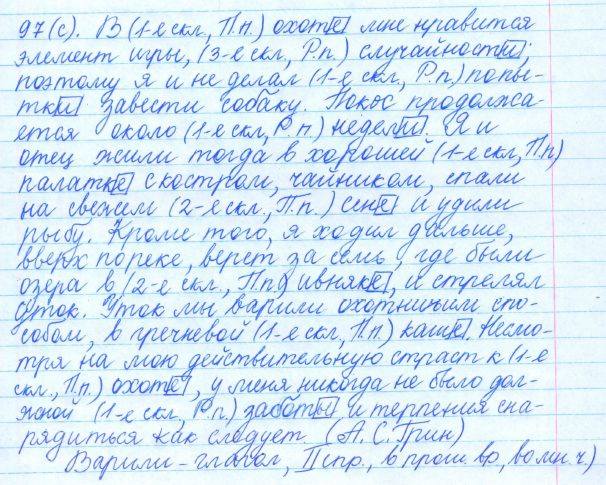 97(с). В (1-е скл, П.п.) охоте мне нравится
элемент игры, (3-е скл, Р.п.) случайности;
поэтому я и не делал (1-е скл, Р.п.) попы-
тки завести собаку. Покос продолжа-
ется около (1-е скл, Р.п.) недели. Я и
отец жили тогда в хорошей (1-е скл, П.п)
палатке с костром, чайником, спали
на свежем (2-е скл., П.п.) сене и удили
рыбу. Кроме того, я ходил дальше,
вверх по реке, верст за семь, где были
озера в (2-е скл., П.п) ивняке, и стрелял
уток. Уток мы варили охотничьим спо-
собом, в гречневой (1-е скл, П.п) каше. Несмо-
тря на мою действительную страсть к (1-е
скл., П.п.) охоте, у меня никогда не было дол-
жной (1-е скл, Р.п.) заботы и терпения сна-
рядиться как следует. (А. С. Грин)
Варили – глагол, II спр., в прош. вр., во мн. ч.)